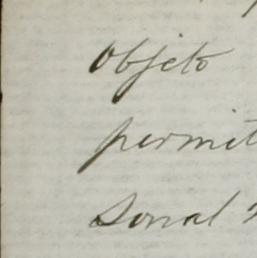 objeto
permit
sonal